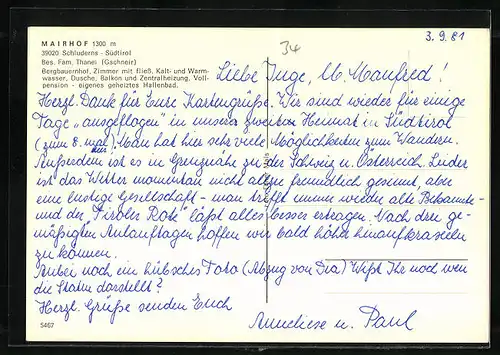 MAIRHOF 1300 m
39020 Schluderns - Südtirol
Bes. Fam. Thanei (Gschneir)
Bergbauernhof, Zimmer mit fließ. Kalt- und Warm-
wasser, Dusche, Balkon und Zentralheizung. Voll-
pension - eigenes geheiztes Hallenbad.
34
3.9.81
Liebe Inge, lb. Manfred!
Herzl. Dank für Eure Kartengrüße. Wir sind wieder für einige
Tage „ausgeflogen" in unsere zweite Heimat in Südtirol
(zum 8. mal). Man hat hier sehr viele Möglichkeiten zum Wandern.
Außerdem ist es in Grenznähe zu der Schweiz u. Österreich. Leider
ist das Wetter momentan nicht allzu freundlich gesinnt, aber
eine lustige Gesellschaft - man trifft immer wieder alte Bekannte -
und der „Tiroler Rote" läßt alles besser ertragen. Nach drei ge-
mäßigten Anlauftagen hoffen wir bald höher hinaufkraxeln
zu können.
Anbei noch ein hübsches Foto (Abzug von Dia) Wißt Ihr noch wen
die Statue darstellt?
Herzl. Grüße senden Euch
Anneliese u. Paul
5467